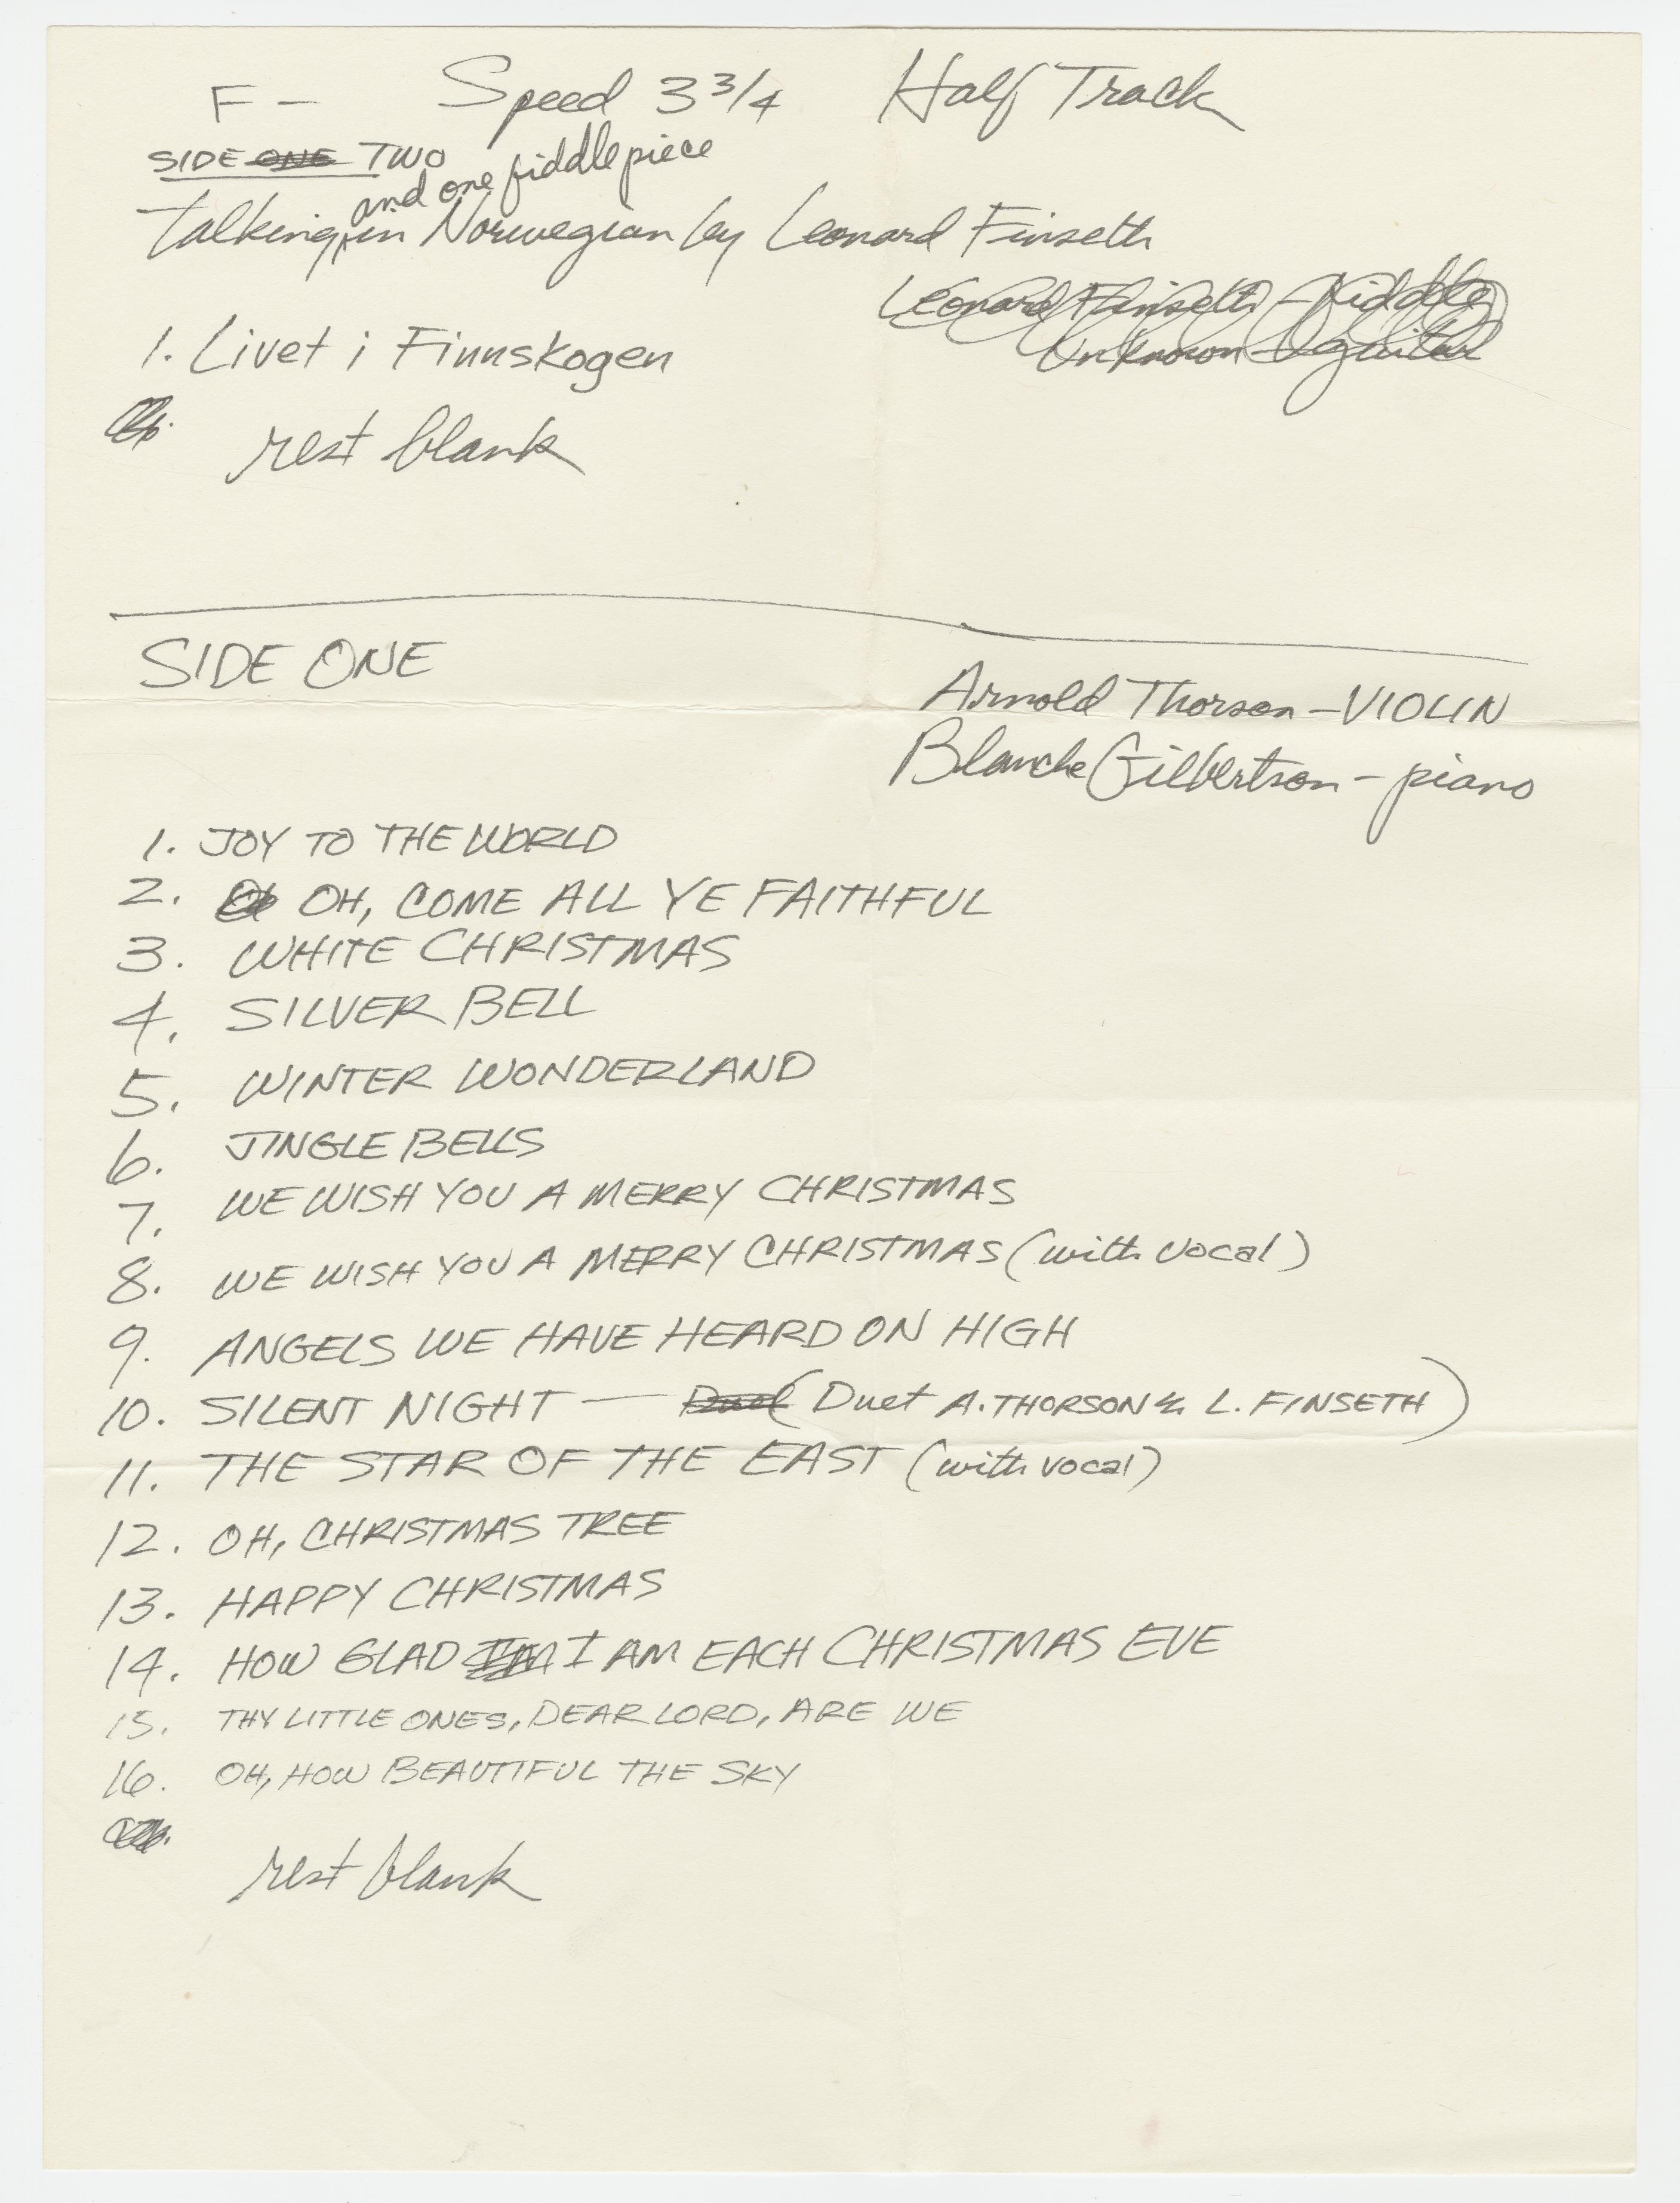 F – Speed 3 3/4 Half Track
SIDE ONE TWO
and one fiddle piece
talking in Norwegian by Leonard Finseth
Leonard Finseth – fiddle
Unknown – guitar
1. Livet i Finnskogen
rest blank
SIDE ONE
Arnold Thorson – VIOLIN
Blanche Gilbertson – piano
1. JOY TO THE WORLD
2. OH, COME ALL YE FAITHFUL
3. WHITE CHRISTMAS
4. SILVER BELL
5. WINTER WONDERLAND
6. JINGLE BELLS
7. WE WISH YOU A MERRY CHRISTMAS
8. WE WISH YOU A MERRY CHRISTMAS (with vocal)
9. ANGELS WE HAVE HEARD ON HIGH
10. SILENT NIGHT — (Duet A. THORSON & L. FINSETH)
11. THE STAR OF THE EAST (with vocal)
12. OH, CHRISTMAS TREE
13. HAPPY CHRISTMAS
14. HOW GLAD I'M I AM EACH CHRISTMAS EVE
15. THY LITTLE ONES, DEAR LORD, ARE WE
16. OH, HOW BEAUTIFUL THE SKY
rest blank